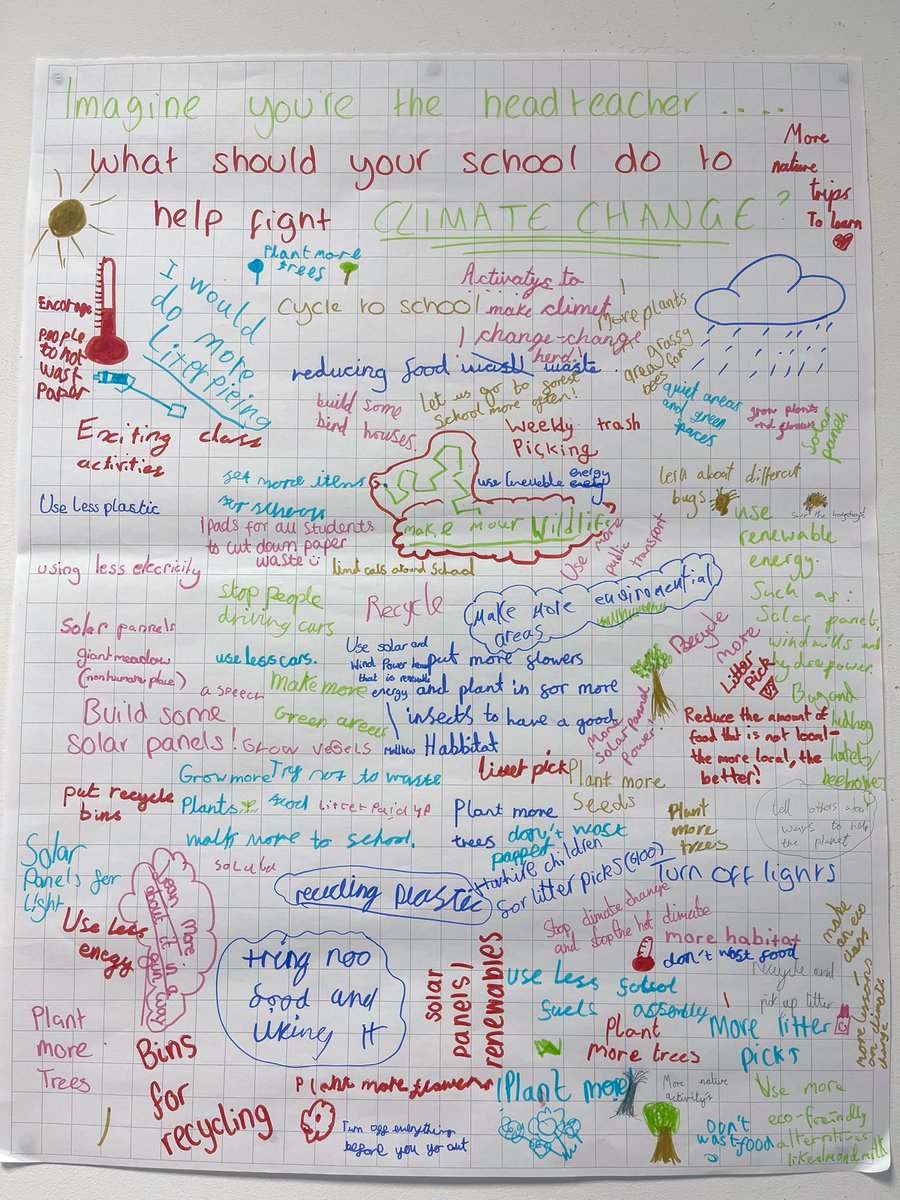 Imagine you're the headteacher....
what should your school do to
help fight CLIMATE CHANGE?
More
nature
trips
To learn
Plant more
trees
I would
do more
Literpieing
Encorage
people
to not
wast
paper
cycle to school
Activatys to
make climet
change-change
herd!
More plants
grassy
areas for
bees
reducing food waste
build some
bird houses
Let us go to forest
School more often!
quiet areas
and green
spaces
grow plants
and flowers
Solar
panels
Exciting class
activities
Weekly trash
Picking
get more items
for school
use renewable energy
Lern about different
bugs
Save the hedgehogs!
Use Less plastic
make mour Wildlife
ipads for all students
to cut down paper
waste
Use more
public
transport
use
renewable
energy.
Such as:
Solar panels,
windmills and
hydropower.
using less elecricity
limit cars around School
stop people
driving cars
Recycle
Make more enviromential
areas
Solar pannels
giant meadow
(non human place)
a speech
use less cars.
Use solar and
Wind Power
that is renewable
energy
Matthew
put more flowers
and plant in for more
insects to have a good
Habbitat
Recycle
more
Litter
Pick
Make more
Green areas
More
Solar pannel
power!
Build some
solar panels!
Grow vegels
Reduce the amount of
food that is not local-
the more local, the
better!
Bug and
hedhog
hotels/
beehomes
Grow more
Plants
Try not to waste
food
litter paid yp
litter pick
Plant more
Seeds
put recycle
bins
Plant more
trees
Plant
more
trees
tell others about
ways to help
the planet
walk more to school.
don't wast
papper
Solar
Panels for
light
recycling plastic
children
for litter picks (£100)
Turn off lights
Use less
energy
Lean more
about it in
a fun way
Stop climate change
and stop the hot climate
more habitat
don't wast food
make
an eco
class
more lessons
on climate
change
tring noo
food and
liking it
solar
panels/
renewables
use less
fuels
assembly
recycle and
pick up litter
Plant
more
Trees
Plant
more trees
More litter
picks
Bins
for
recycling
Plant more flowers
Turn off everything
before you go out
Plant more
More native
activity's
Don't
wast food
Use more
eco-freindly
alternatives
like almond milk